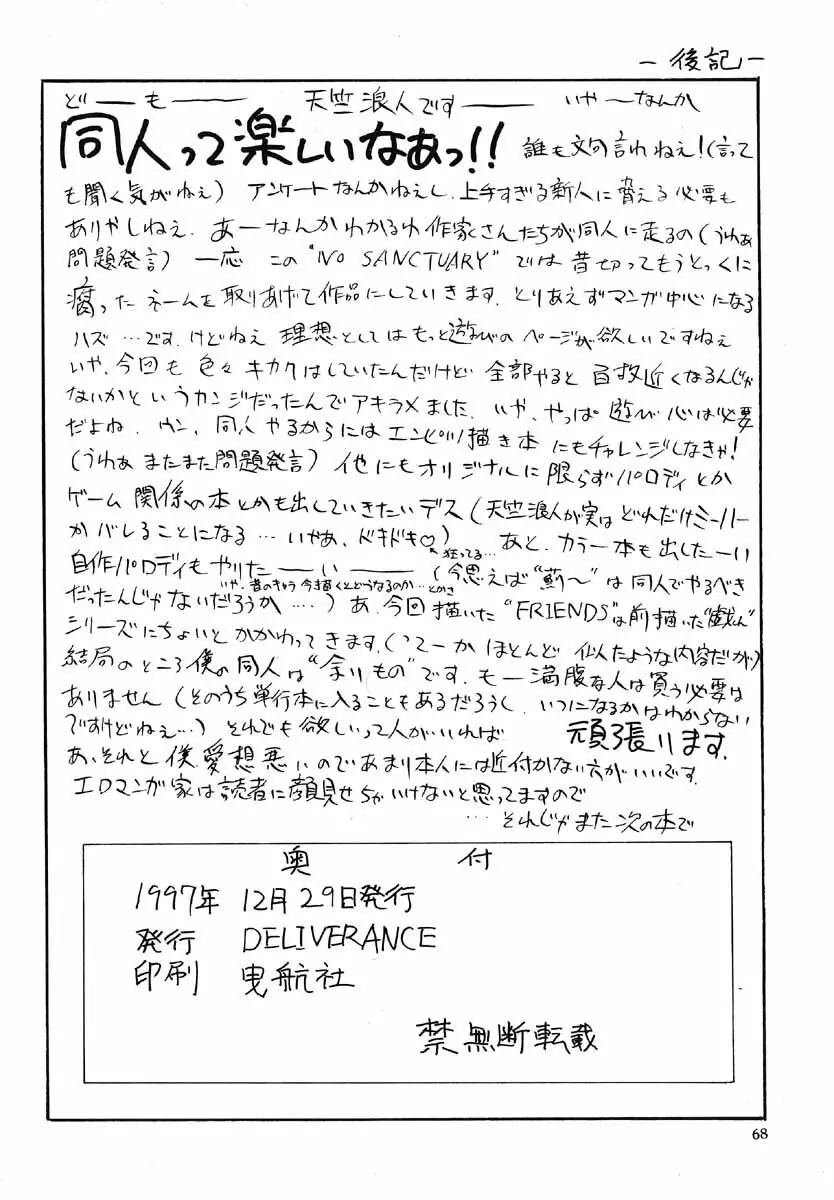 －後記－
ど──も── 天竺浪人です── いや─なんか
同人って楽しいなあっ!! 誰も文句言わねぇ!(言って
も聞く気がねぇ) アンケートなんかねぇし、上手すぎる新人に脅える必要も
ありやしねぇ. あーなんかわかるわ 作家さんたちが同人に走るの(うわぁ
問題発言) 一応 この"NO SANCTUARY"では昔切ってもうとっくに
腐ったネームを取りあげて作品にしていきます. とりあえずマンガ中心になる
ハズ…です. けどねぇ 理想としてはもっと遊びのページが欲しいですねぇ
いや、今回も色々キカクはしていたんだけど 全部やると百枚近くなるんじゃ
ないかというカンジだったんでアキラメました. いや、やっぱ遊び心は必要
だよね. ウン. 同人やるからにはエンピツ描き本にもチャレンジしなきゃ!
(うわぁ またまた問題発言) 他にもオリジナルに限らずパロディとか
ゲーム関係の本とかも出していきたいデス(天竺浪人が実はどれだけミーハー
かバレることになる…いやぁ、ドキドキ♡) あと、カラー本も出したーい
狂ってる…
自作パロディもやりた──い── (今思えば"薊〜"は同人でやるべき
いや、昔のきゃら今描くとどうなるのか…とかさ
だったんじゃないだろうか…) あ、今回描いた"FRIENDS"は前描いた"戯れ"
シリーズにちょいとかかわってきます.(つーかほとんど似たような内容だが)
結局のところ僕の同人は"余りもの"です. もー満腹な人は買う必要は
ありません(そのうち単行本に入ることもあるだろうし. いつになるかはわからない
ですけどねぇ…) それでも欲しいって人がいれば 頑張ります.
あ、それと僕、愛想悪いのであまり本人には近付かない方がいいです.
エロマンガ家は読者に顔見せちゃいけないと思ってますので
…それじゃまた次の本で
奥 付
1997年 12月29日発行
発行 DELIVERANCE
印刷 曳航社
禁無断転載
68